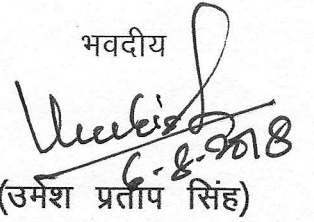 भवदीय
6-8-2018
(उमेश प्रताप सिंह)